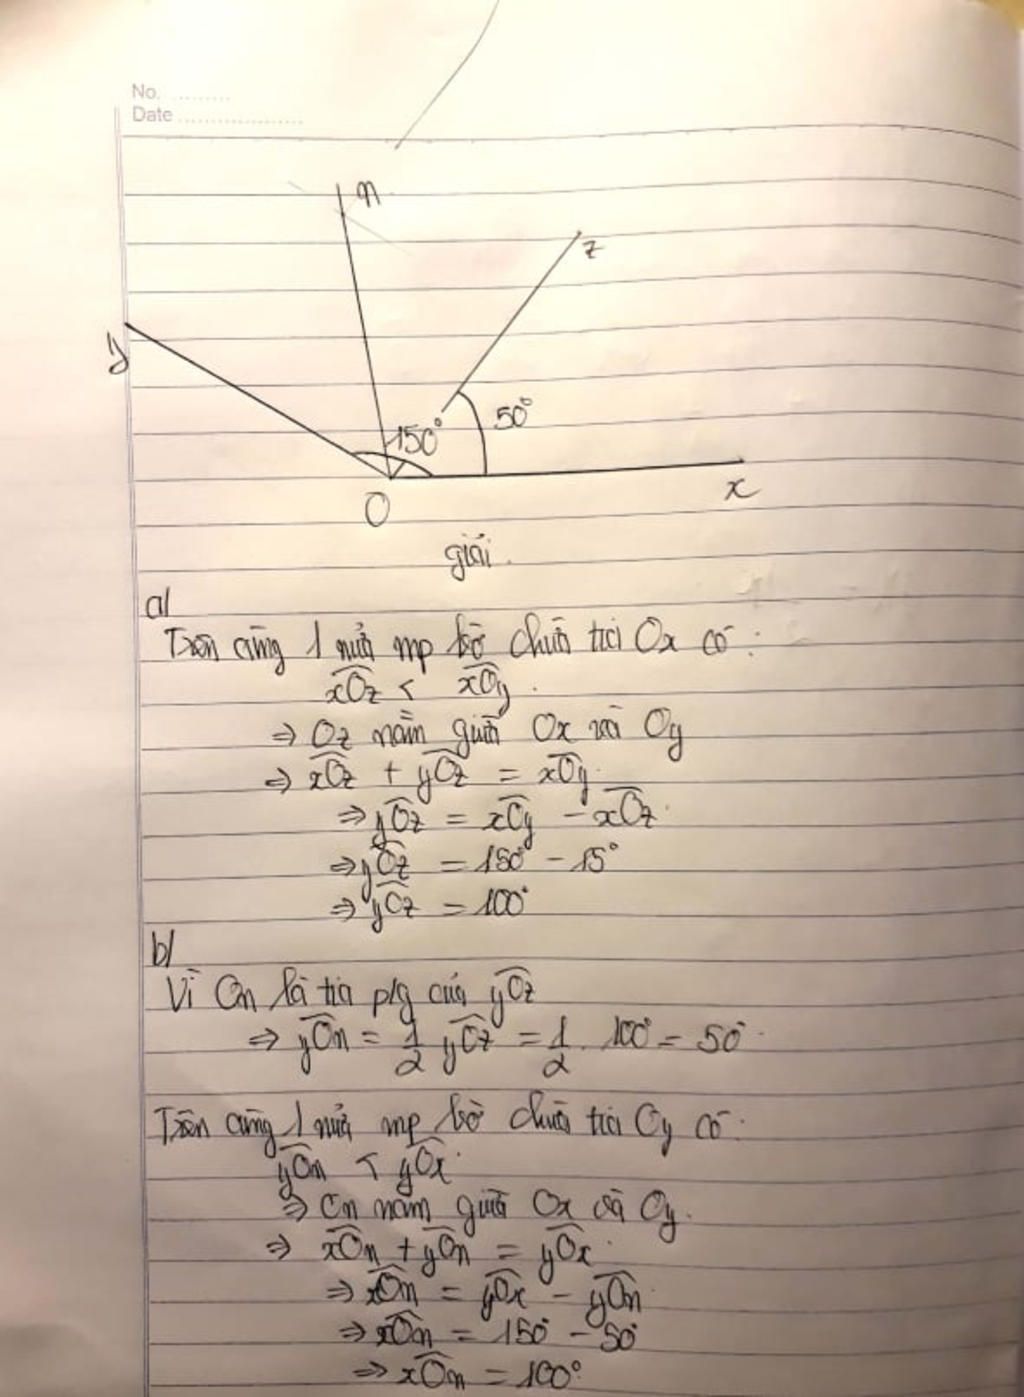 No. ..........
Date ......................
n
z
y
150°
50°
O
x
giải.
a/
Trên cùng 1 nửa mp bờ chứa tia Ox có:
xOz < xOy.
⇒ Oz nằm giữa Ox và Oy
⇒ xOz + yOz = xOy.
⇒ yOz = xOy - xOz.
⇒ yOz = 150° - 15°
⇒ yOz = 100°
b/
Vì On là tia p/g của yOz
⇒ yOn = 1/2 yOz = 1/2 . 100° = 50°.
Trên cùng 1 nửa mp bờ chứa tia Oy có:
yOn < yOx.
⇒ On nằm giữa Ox và Oy.
⇒ xOn + yOn = yOx.
⇒ xOn = yOx - yOn
⇒ xOn = 150° - 50°
⇒ xOn = 100°.